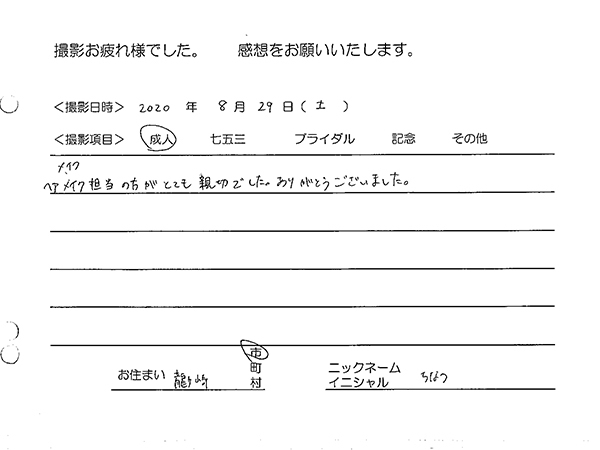 撮影お疲れ様でした。 感想をお願いいたします。
＜撮影日時＞ 2020 年 8 月 29 日 ( 土 )
＜撮影項目＞ 成人 七五三 ブライダル 記念 その他
メイク
ヘアメイク担当の方がとても親切でした。ありがとうございました。
市
お住まい 龍ヶ崎 町 ニックネーム
村 イニシャル